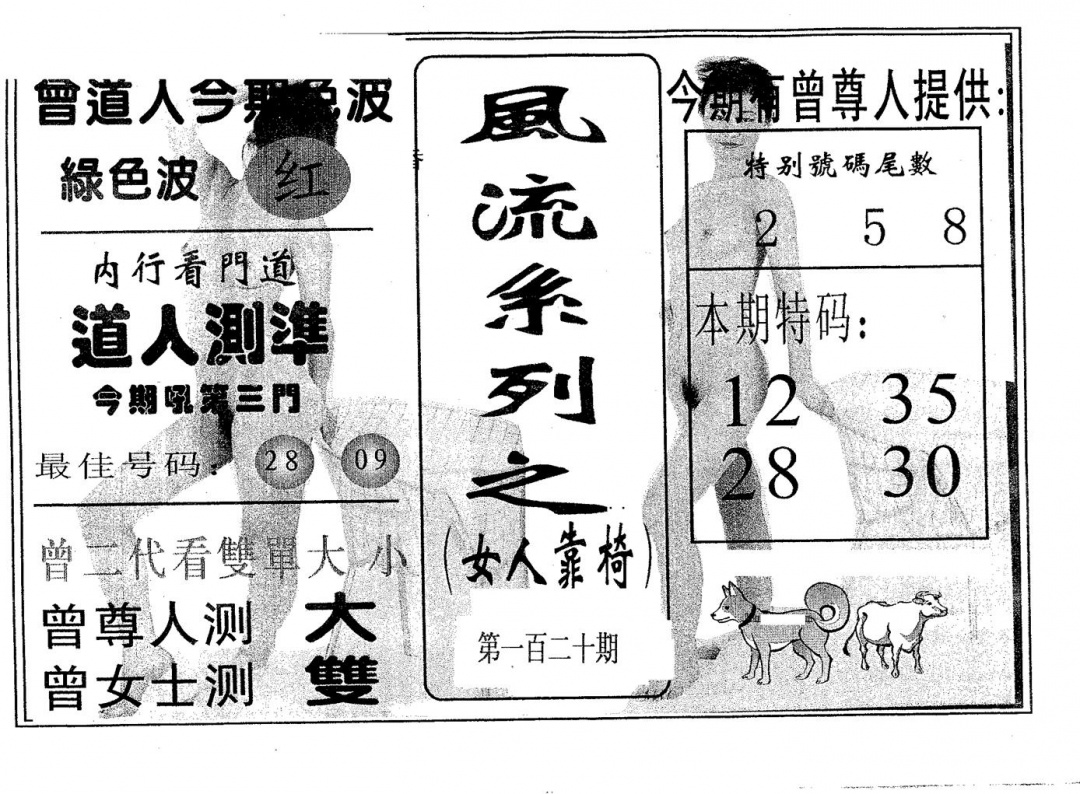 曾道人今期色波
綠色波 红
内行看門道
道人測準
今期吼第三門
最佳号码： 28 09
曾二代看雙單大小
曾尊人测 大
曾女士测 雙
風流系列之
（女人靠椅）
第一百二十期
今期有曾尊人提供：
特别號碼尾數
2 5 8
本期特码：
12 35
28 30